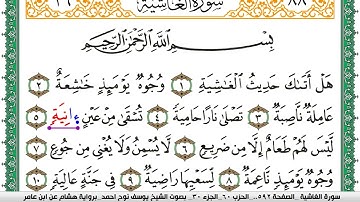 سورة الغاشية ٨٨
بِسْمِ ٱللَّهِ ٱلرَّحْمَٰنِ ٱلرَّحِيمِ
هَلْ أَتَىٰكَ حَدِيثُ ٱلْغَٰشِيَةِ ١ وُجُوهٌ يَوْمَئِذٍ خَٰشِعَةٌ ٢
عَامِلَةٌ نَّاصِبَةٌ ٣ تَصْلَىٰ نَارًا حَامِيَةً ٤ تُسْقَىٰ مِنْ عَيْنٍ ءَانِيَةٍ ٥
لَّيْسَ لَهُمْ طَعَامٌ إِلَّا مِن ضَرِيعٍ ٦ لَّا يُسْمِنُ وَلَا يُغْنِي مِن جُوعٍ ٧
وُجُوهٌ يَوْمَئِذٍ نَّاعِمَةٌ ٨ لِّسَعْيِهَا رَاضِيَةٌ ٩ فِي جَنَّةٍ عَالِيَةٍ ١٠
سورة الغاشية الصفحة ٥٩٢ الحزب ٦٠ الجزء ٣٠ بصوت الشيخ يوسف نوح احمد برواية هشام عن ابن عامر